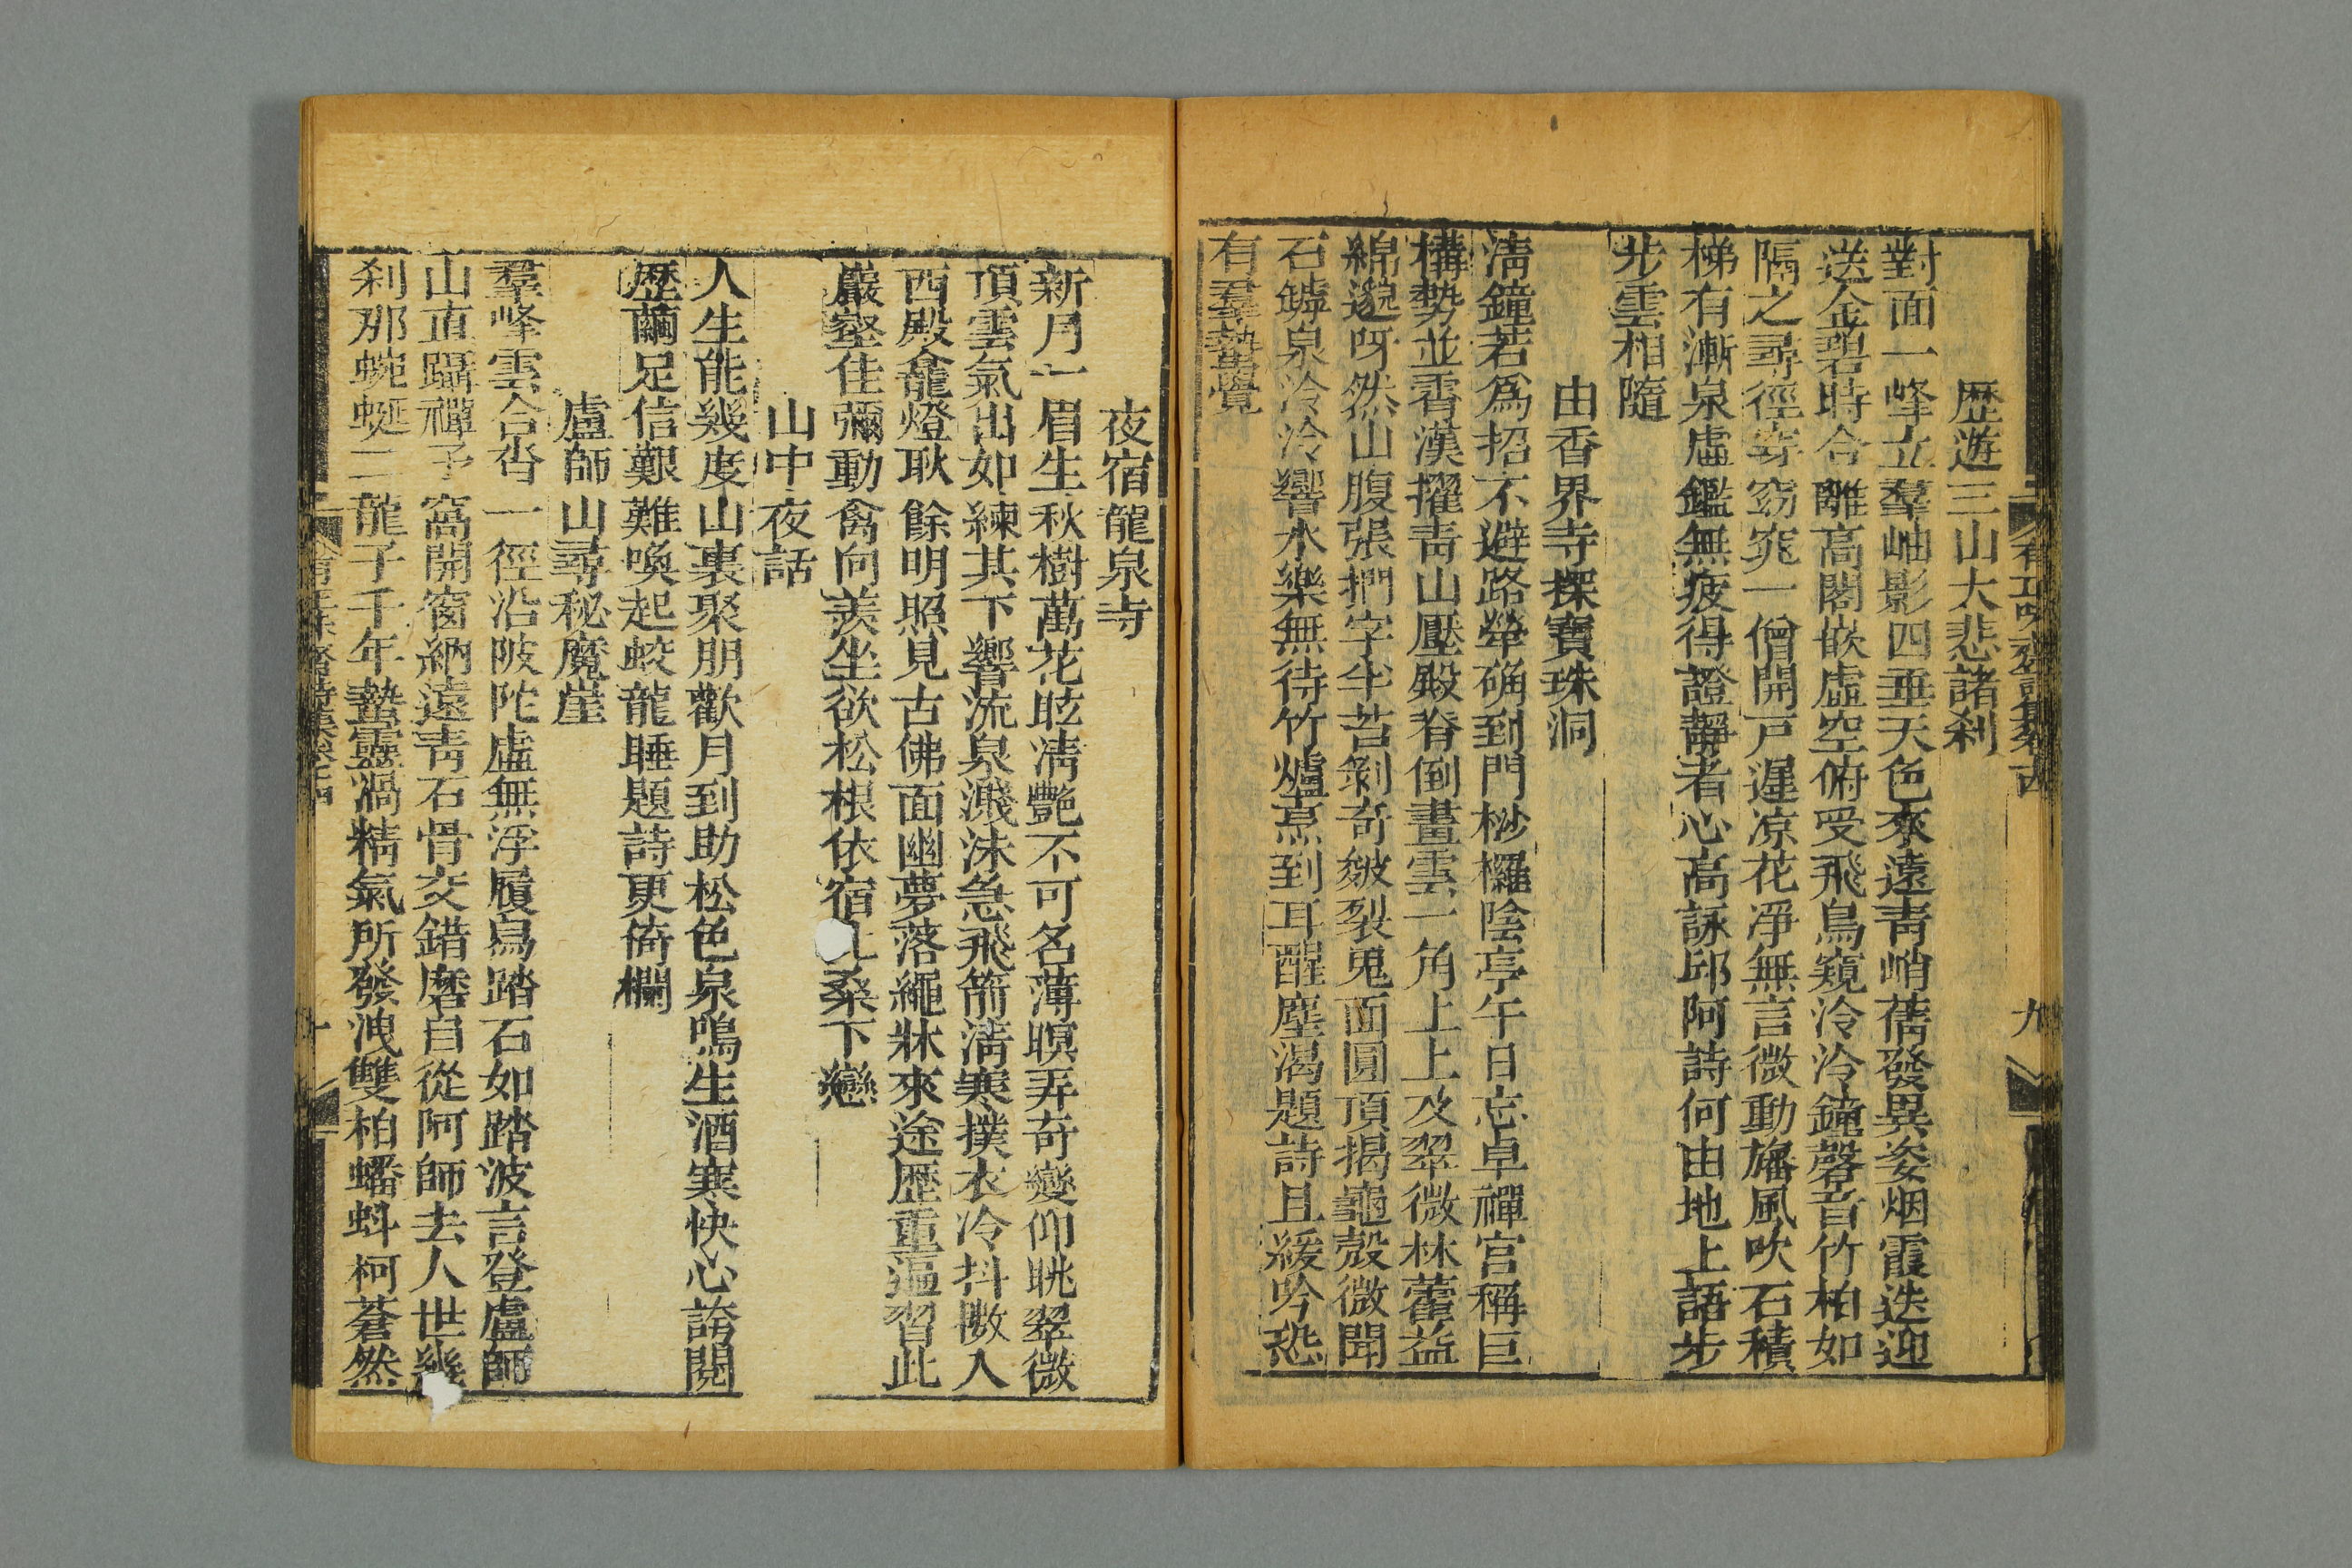 歷遊三山大悲諸刹
對面一峰立羣岫影四垂天色來遠靑峭蒨發異姿烟霞迭迎
送金碧時合離高閣嵌虛空俯受飛鳥窺泠泠鐘磬音竹柏如
隔之尋徑穿窈窕一僧開戸遲凉花淨無言微動旛風吹石積
梯有漸泉虛鑑無疲得證靜者心高詠邱阿詩何由地上語步
步雲相隨
由香界寺探寶珠洞
淸鐘若爲招不避路犖确到門桫欏陰亭午日忘卓禪宫稱巨
構勢並霄漢擢靑山壓殿脊倒畫雲一角上上及翠微林藿益
綿邈呀然山腹張捫字半苔剝奇皴裂鬼面圓頂揭龜殼微聞
石罅泉泠泠響水樂無待竹爐烹到耳醒塵渴題詩且緩吟恐
有羣蟄覺
九
夜宿龍泉寺
新月一眉生秋樹萬花眩淸艷不可名薄暝弄奇變仰眺翠微
頂雲氣出如練其下響流泉濺沬急飛箭淸寒撲衣冷抖擻入
西殿龕燈耿餘明照見古佛面幽夢落繩牀來途歷重遍習此
巖壑佳彌動禽向羨坐欲松根依宿桑下戀
山中夜話
人生能幾度山裏聚朋歡月到助松色泉鳴生酒寒快心誇閱
歷繭足信艱難喚起蛟龍睡題詩更倚欄
盧師山尋秘魔崖
羣峰雲合沓一徑沿陂陀虛無浮履舄踏石如踏波言登盧師
山直躡禪子窩開窗納遠靑石骨交錯磨自從阿師去人世幾
刹那蜿蜒二龍子千年蟄靈渦精氣所發洩雙柏蟠蚪柯蒼然
十